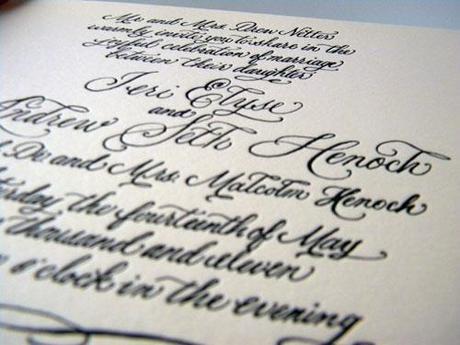 Mr. and Mrs. Drew Nitles
warmly invite you to share in the
joyful celebration of marriage
between their daughter
Jeri Elyse
and
Andrew Seth Henoch
Dr. and Mrs. Malcolm Henoch
the fourteenth of May
thousand and eleven
o'clock in the evening